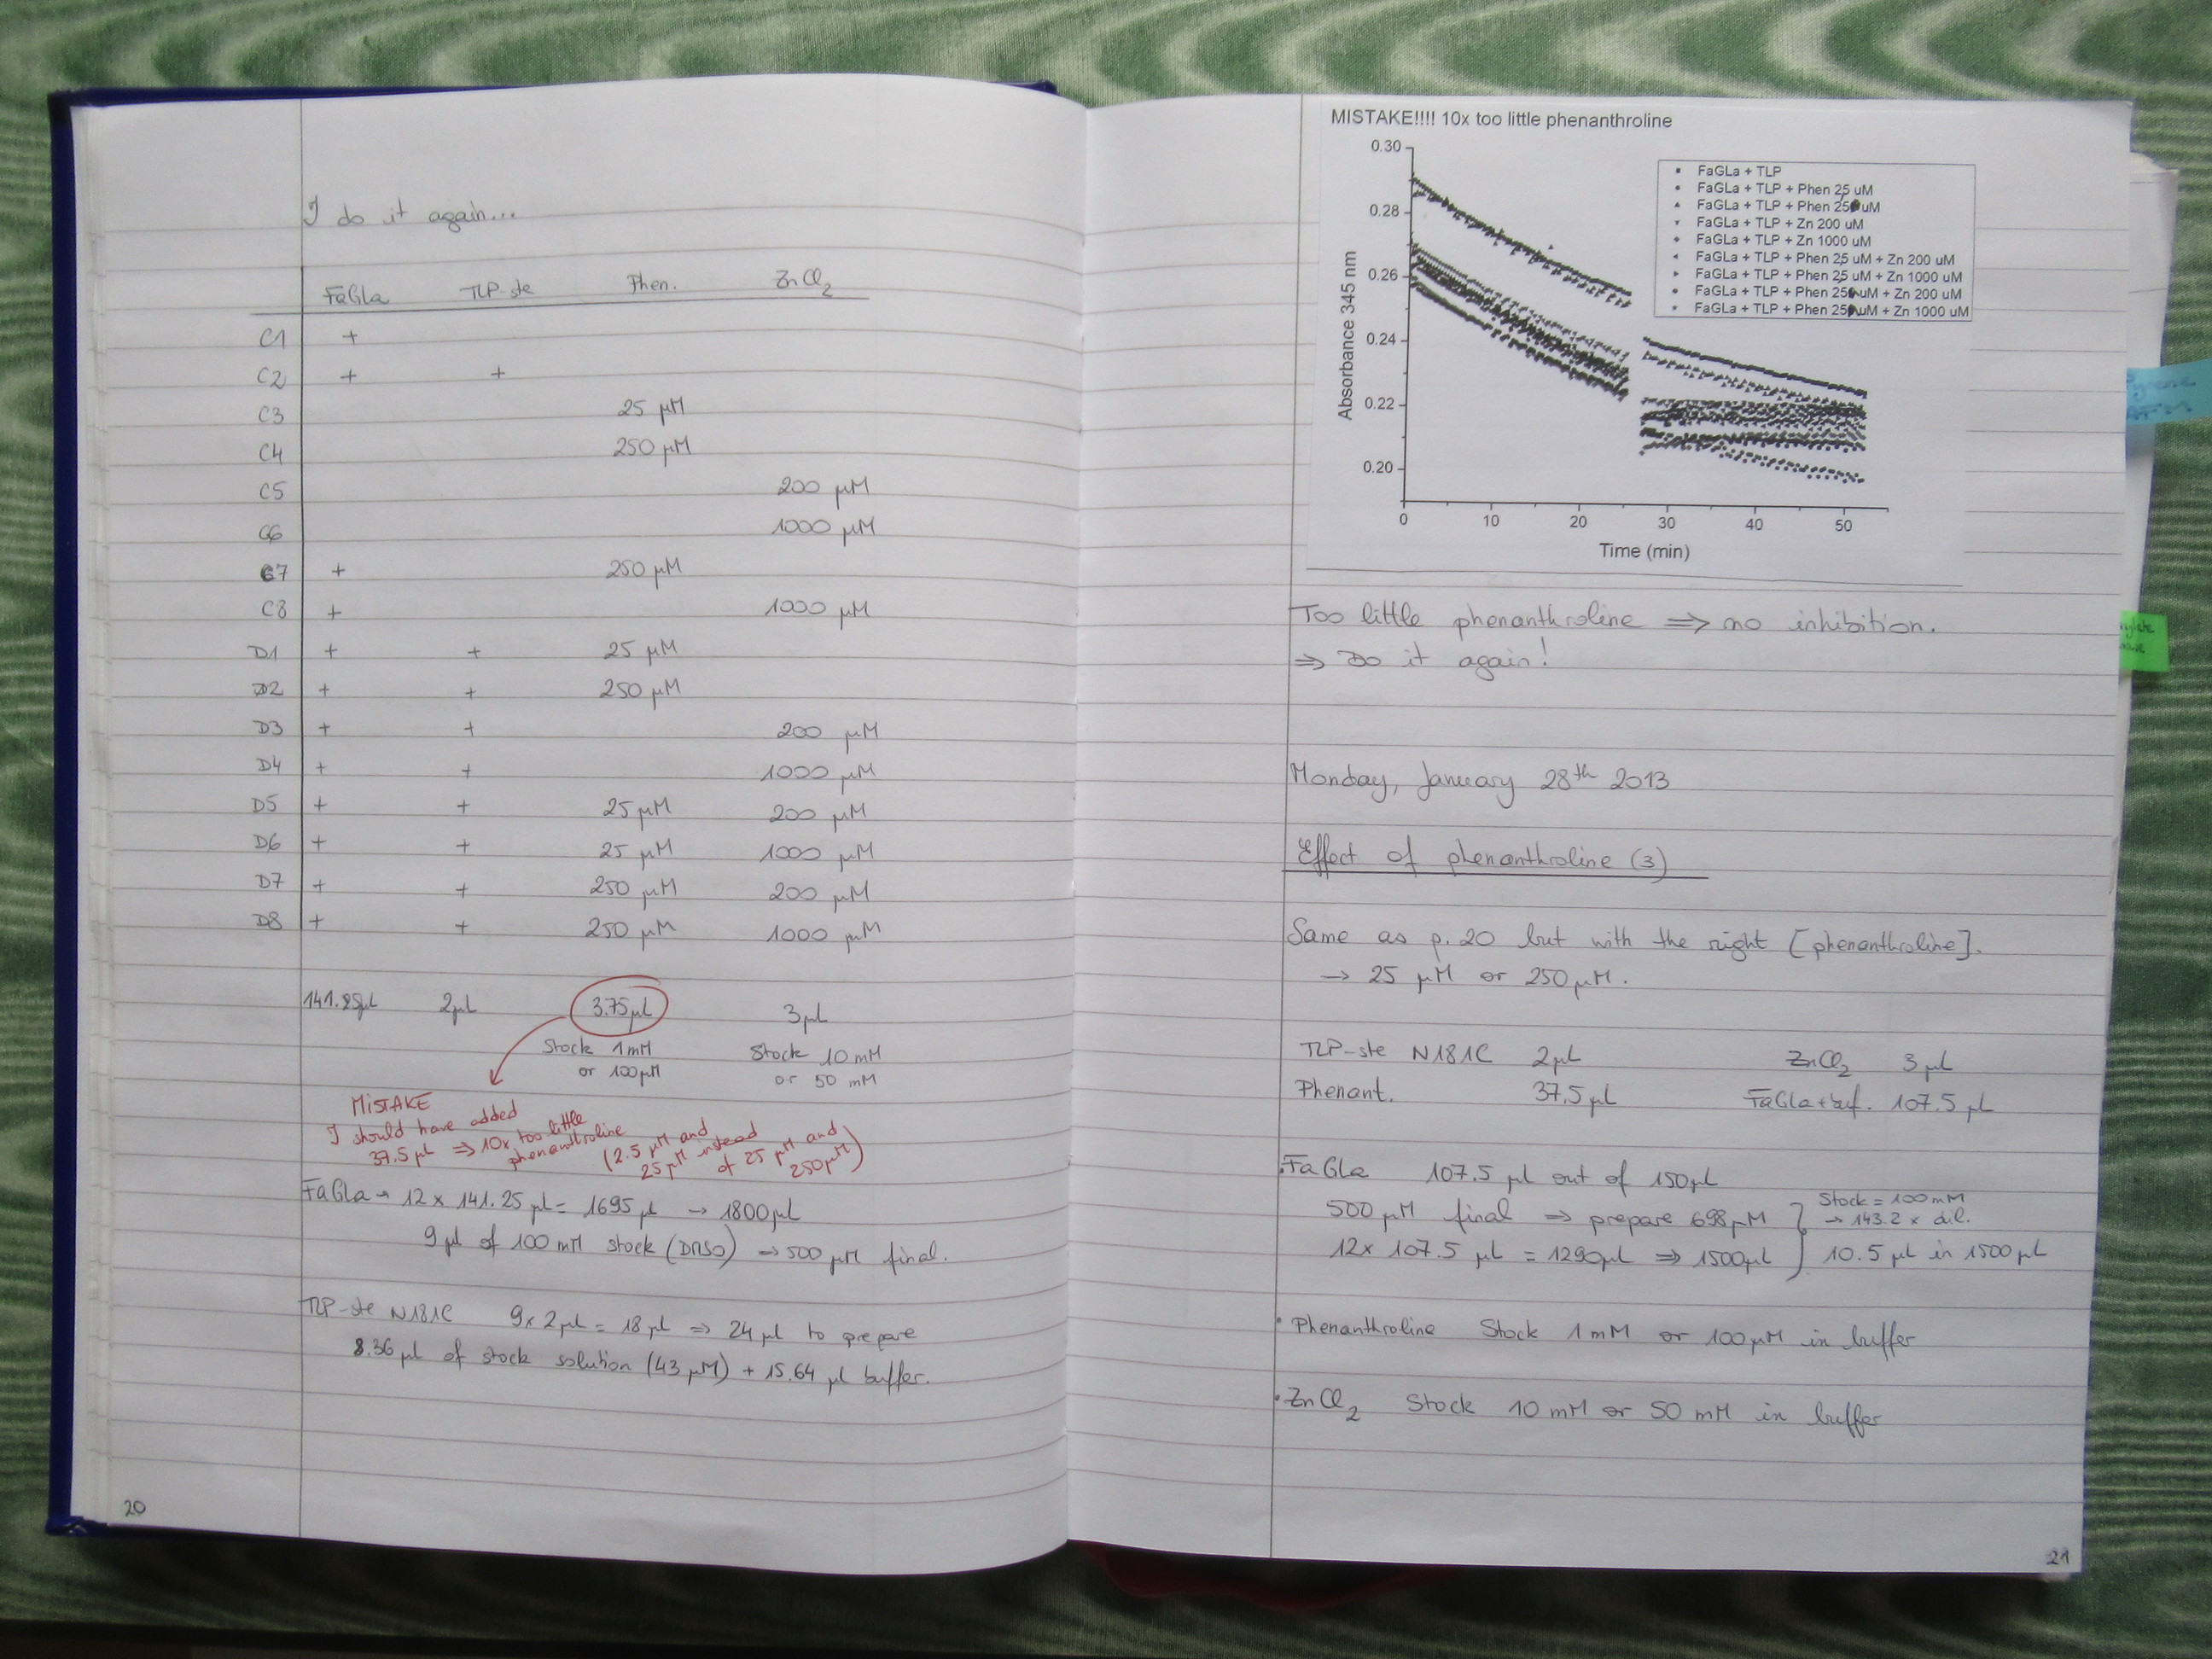 I do it again...
FaGla TLP-ste Phen. ZnCl2
C1 +
C2 + +
C3 25 µM
C4 250 µM
C5 200 µM
C6 1000 µM
C7 + 250 µM
C8 + 1000 µM
D1 + + 25 µM
D2 + + 250 µM
D3 + + 200 µM
D4 + + 1000 µM
D5 + + 25 µM 200 µM
D6 + + 25 µM 1000 µM
D7 + + 250 µM 200 µM
D8 + + 250 µM 1000 µM
141.25µL 2µL 3.75µL 3µL
Stock 1mM Stock 10 mM
or 100µM or 50 mM
MISTAKE
I should have added
37.5 µL ⇒ 10x too little
phenanthroline
(2.5 µM and
25µM instead
of 25 µM and
250µM)
FaGla → 12 x 141.25 µL = 1695 µL → 1800µL
9 µL of 100 mM stock (DMSO) → 500 µM final.
TLP-ste N181C 9x 2µL = 18 µL ⇒ 24 µL to prepare
8.36 µL of stock solution (43 µM) + 15.64 µL buffer.
20
MISTAKE!!!! 10x too little phenanthroline
0.30
0.28
0.26
0.24
0.22
0.20
Absorbance 345 nm
FaGLa + TLP
FaGLa + TLP + Phen 25 uM
FaGLa + TLP + Phen 25 uM
FaGLa + TLP + Zn 200 uM
FaGLa + TLP + Zn 1000 uM
FaGLa + TLP + Phen 25 uM + Zn 200 uM
FaGLa + TLP + Phen 25 uM + Zn 1000 uM
FaGLa + TLP + Phen 25 uM + Zn 200 uM
FaGLa + TLP + Phen 25 uM + Zn 1000 uM
0 10 20 30 40 50
Time (min)
Too little phenanthroline ⇒ no inhibition.
⇒ Do it again!
Monday, January 28th 2013
Effect of phenanthroline (3)
Same as p. 20 but with the right [phenanthroline].
→ 25 µM or 250 µM.
TLP-ste N181C 2µL ZnCl2 3 µL
Phenant. 37.5 µL FaGla+buf. 107.5 µL
FaGla 107.5 µL out of 150µL
500 µM final ⇒ prepare 698µM
12x 107.5 µL = 1290µL ⇒ 1500µL
Stock = 100mM
→ 143.2 x dil.
10.5 µL in 1500µL
• Phenanthroline Stock 1 mM or 100µM in buffer
• ZnCl2 Stock 10 mM or 50 mM in buffer
21